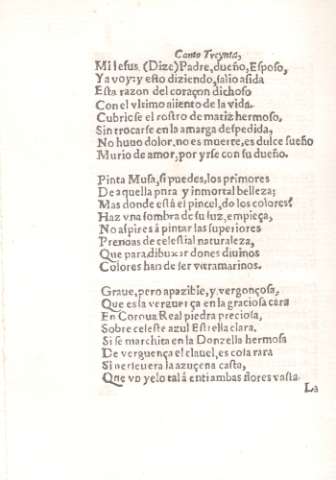 Canto Treynta,
Mi Iesus (Dize) Padre, dueño, Esposo,
Ya voy: y esto diziendo, salio asida
Esta razon del coraçon dichoso
Con el vltimo aliento de la vida.
Cubricse el rostro de matiz hermoso,
Sin trocarse en la amarga despedida,
No huuo dolor, no es muerte, es dulce sueño
Murio de amor, por yrse con su dueño.
Pinta Musa, si puedes, los primores
De aquella pura y inmortal belleza;
Mas donde està el pincel, do los colores?
Haz vna sombra de su luz, empieça,
No aspires à pintar las superiores
Prendas de celestial naturaleza,
Que para dibuxar dones diuinos
Colores han de ser vltramarinos.
Graue, pero apazible, y vergonçosa,
Que es la verguença en la graciosa cara
En Corona Real piedra preciosa,
Sobre celeste azul Estrella clara.
Si se marchita en la Donzella hermosa
De verguença el clauel, es cosa rara
Si perseuera la azuçena casta,
Que vn yelo tal à entrambas flores vasta.
La